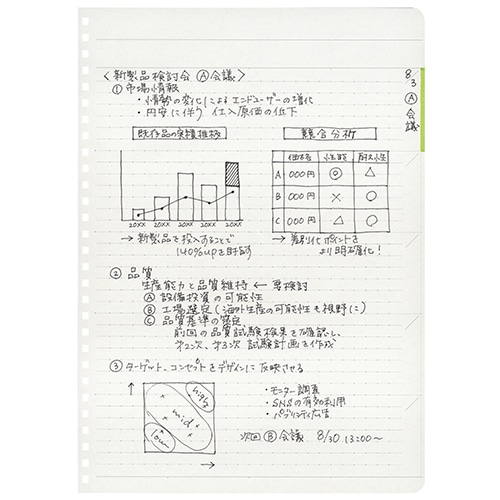 〈新製品検討会 Ⓐ会議〉
8/3 Ⓐ会議
① 市場情報
・情勢の変化によるエンドユーザーの増化
・円安に伴う 仕入原価の低下
既存品の実積推移
20XX 20XX 20XX 20XX 20XX
→ 新製品を投入することで
140%upを目指す
競合分析
価格 性能 耐久性
A 000円 ◎ △
B 000円 × ○
C 000円 △ ○
→ 差別化ポイントを
より明確化!
② 品質
生産能力と品質維持 ← 要検討
Ⓐ 設備投資の可能性
Ⓑ 工場選定(海外生産の可能性も視野に)
Ⓒ 品質基準の策定
前回の品質試験結果を確認し、
第2次、第3次 試験計画を作成
③ ターゲット、コンセプトをデザインに反映させる
high
mid
low
・モニター調査
・SNSの有効利用
・パブリシティ広告
次回 Ⓑ会議 8/30 13:00〜